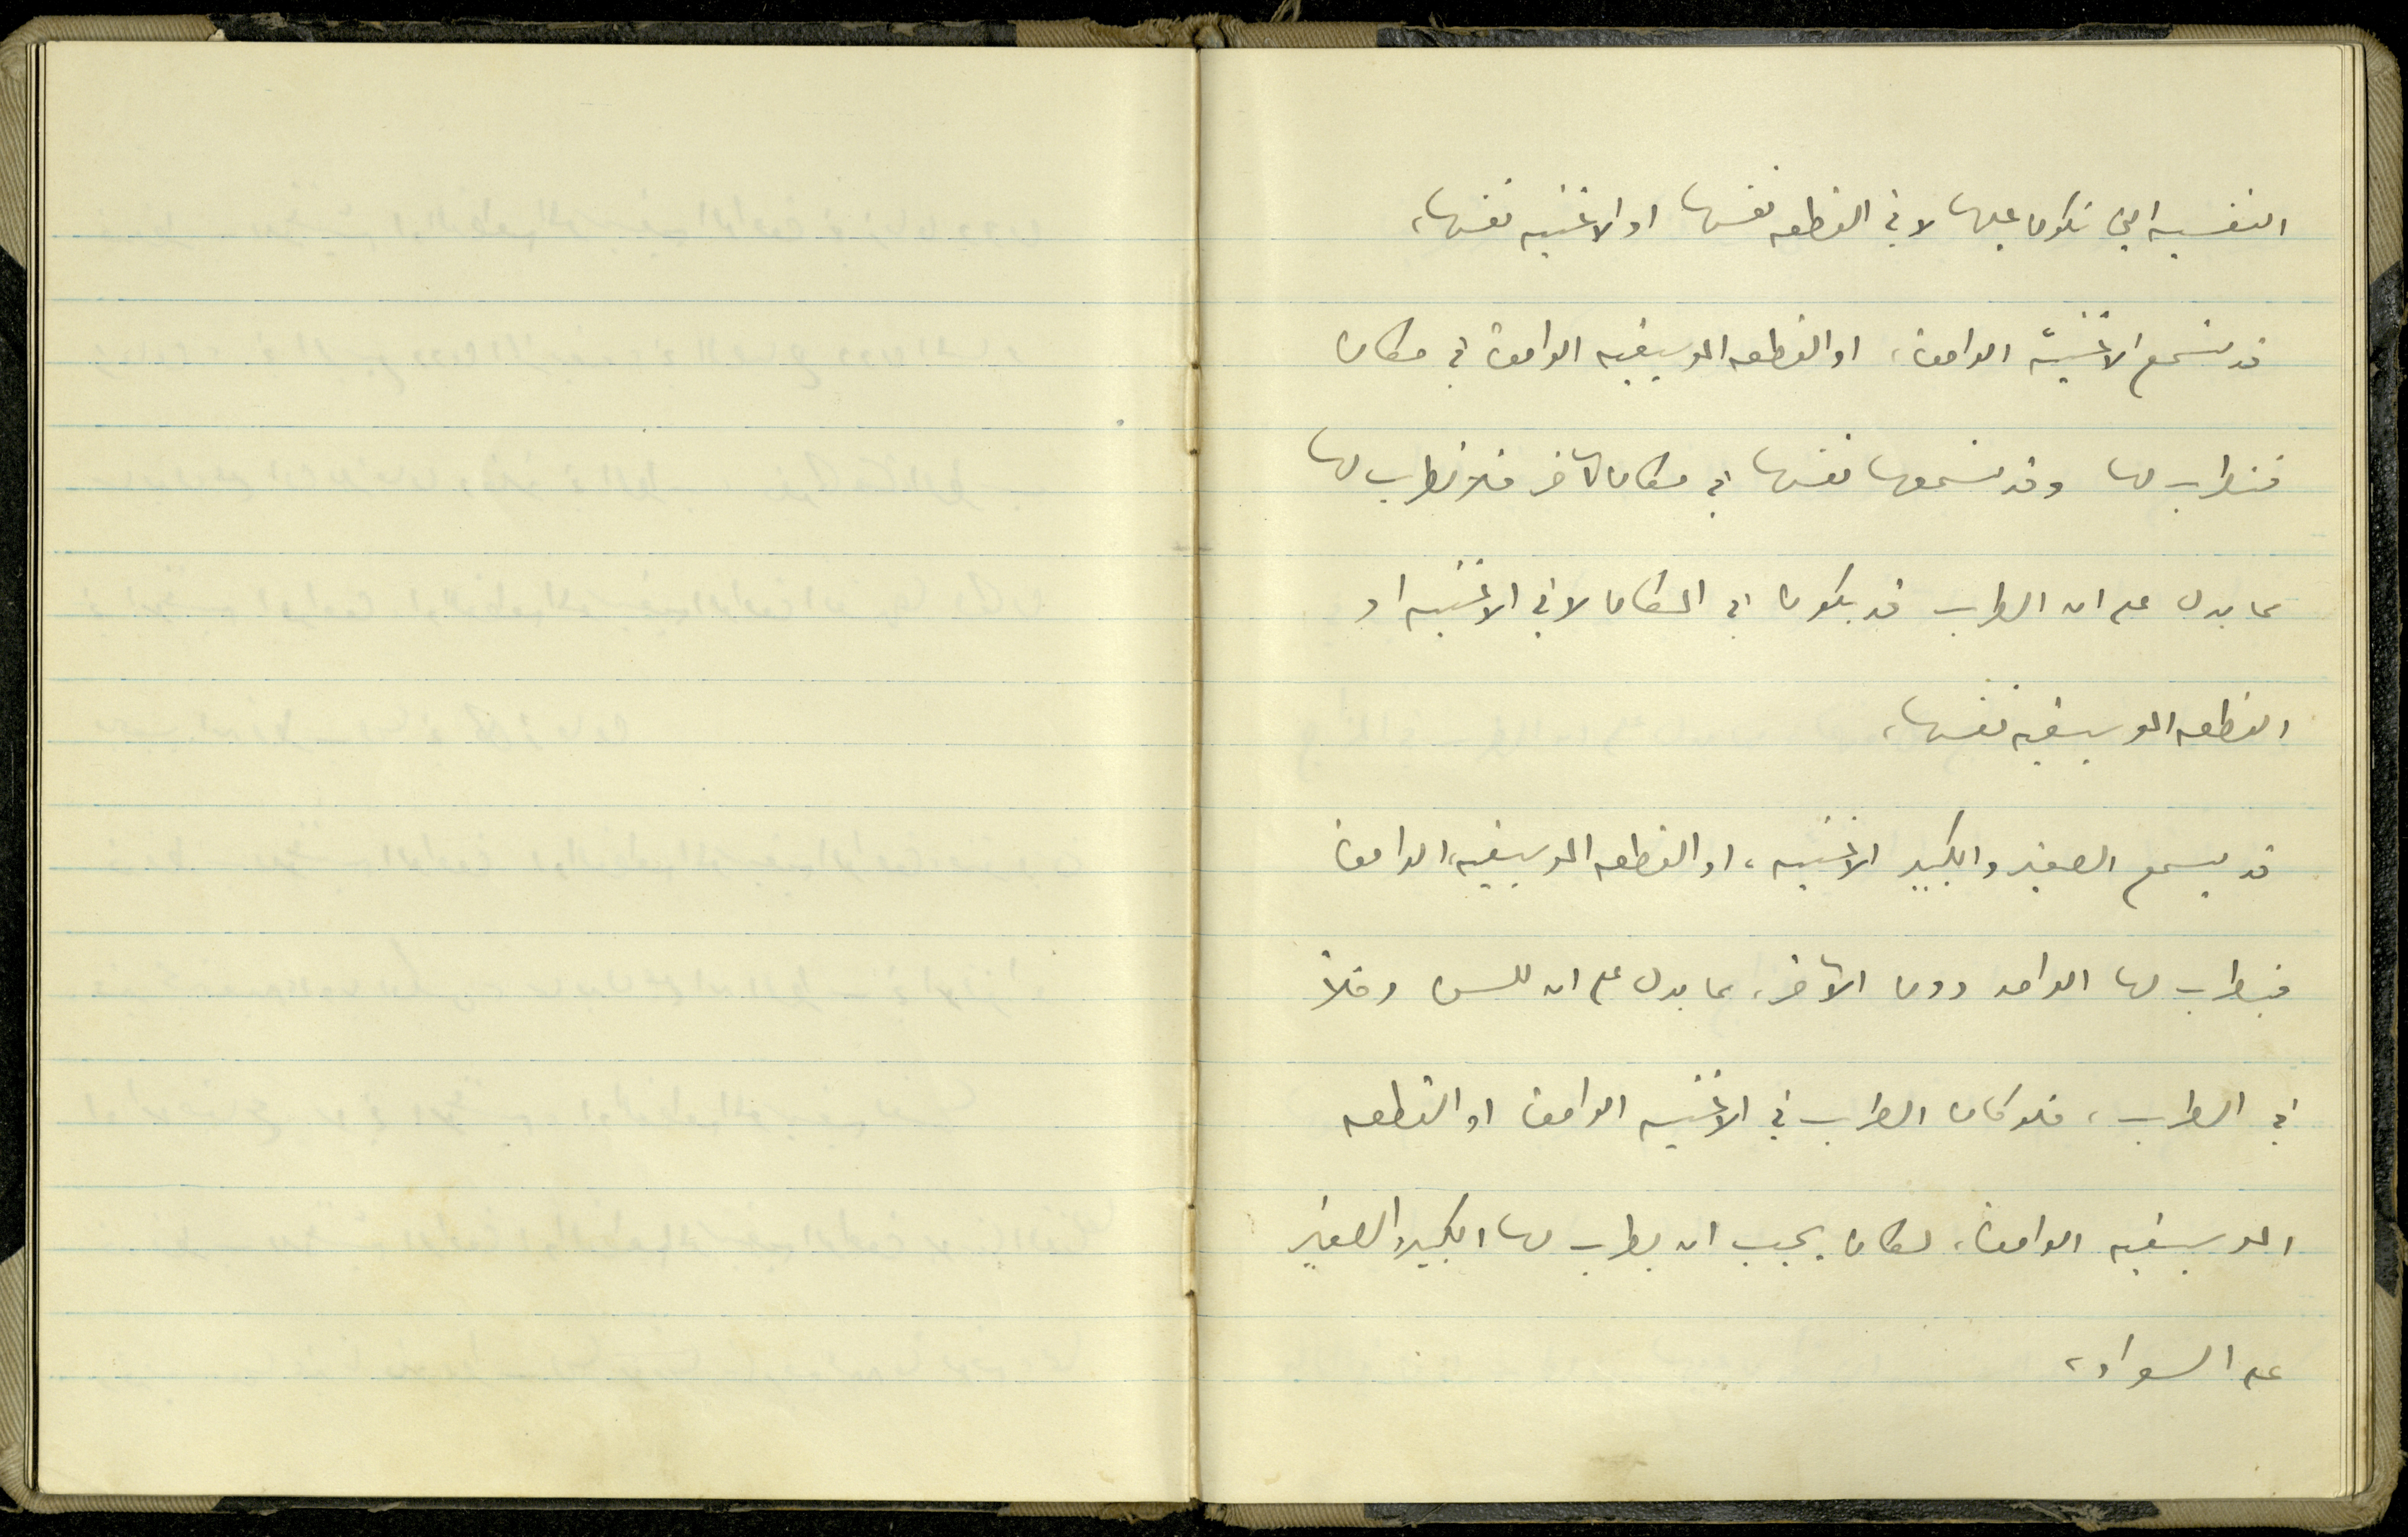 النفسيه التي نكون عليها لا في القطعه نفسها او الاغنيه نفسها،
قد نسمع الاغنيّه الواحدة، او القطعه الموسيقيه الواحدة في مكان
فنطرب لها وقد نسمعها نفسها في مكان آخر فلا نطرب لها
مما يدل على ان الطرب قد يكون في المكان لا في الاغنيه او
القطعه الموسيقيه نفسها،
قد يسمع الصغير والكبير الاغنيه، او القطعه الموسيقيه، الواحدة
فيطرب لها الواحد دون الآخر، مما يدل على ان للسن دخلاً
في الطرب، فلو كان الطرب في الاغنيه الواحدة او القطعه
الموسيقيه الواحدة، لكان يجب ان يطرب لها الكبير والصغير
على السواء،